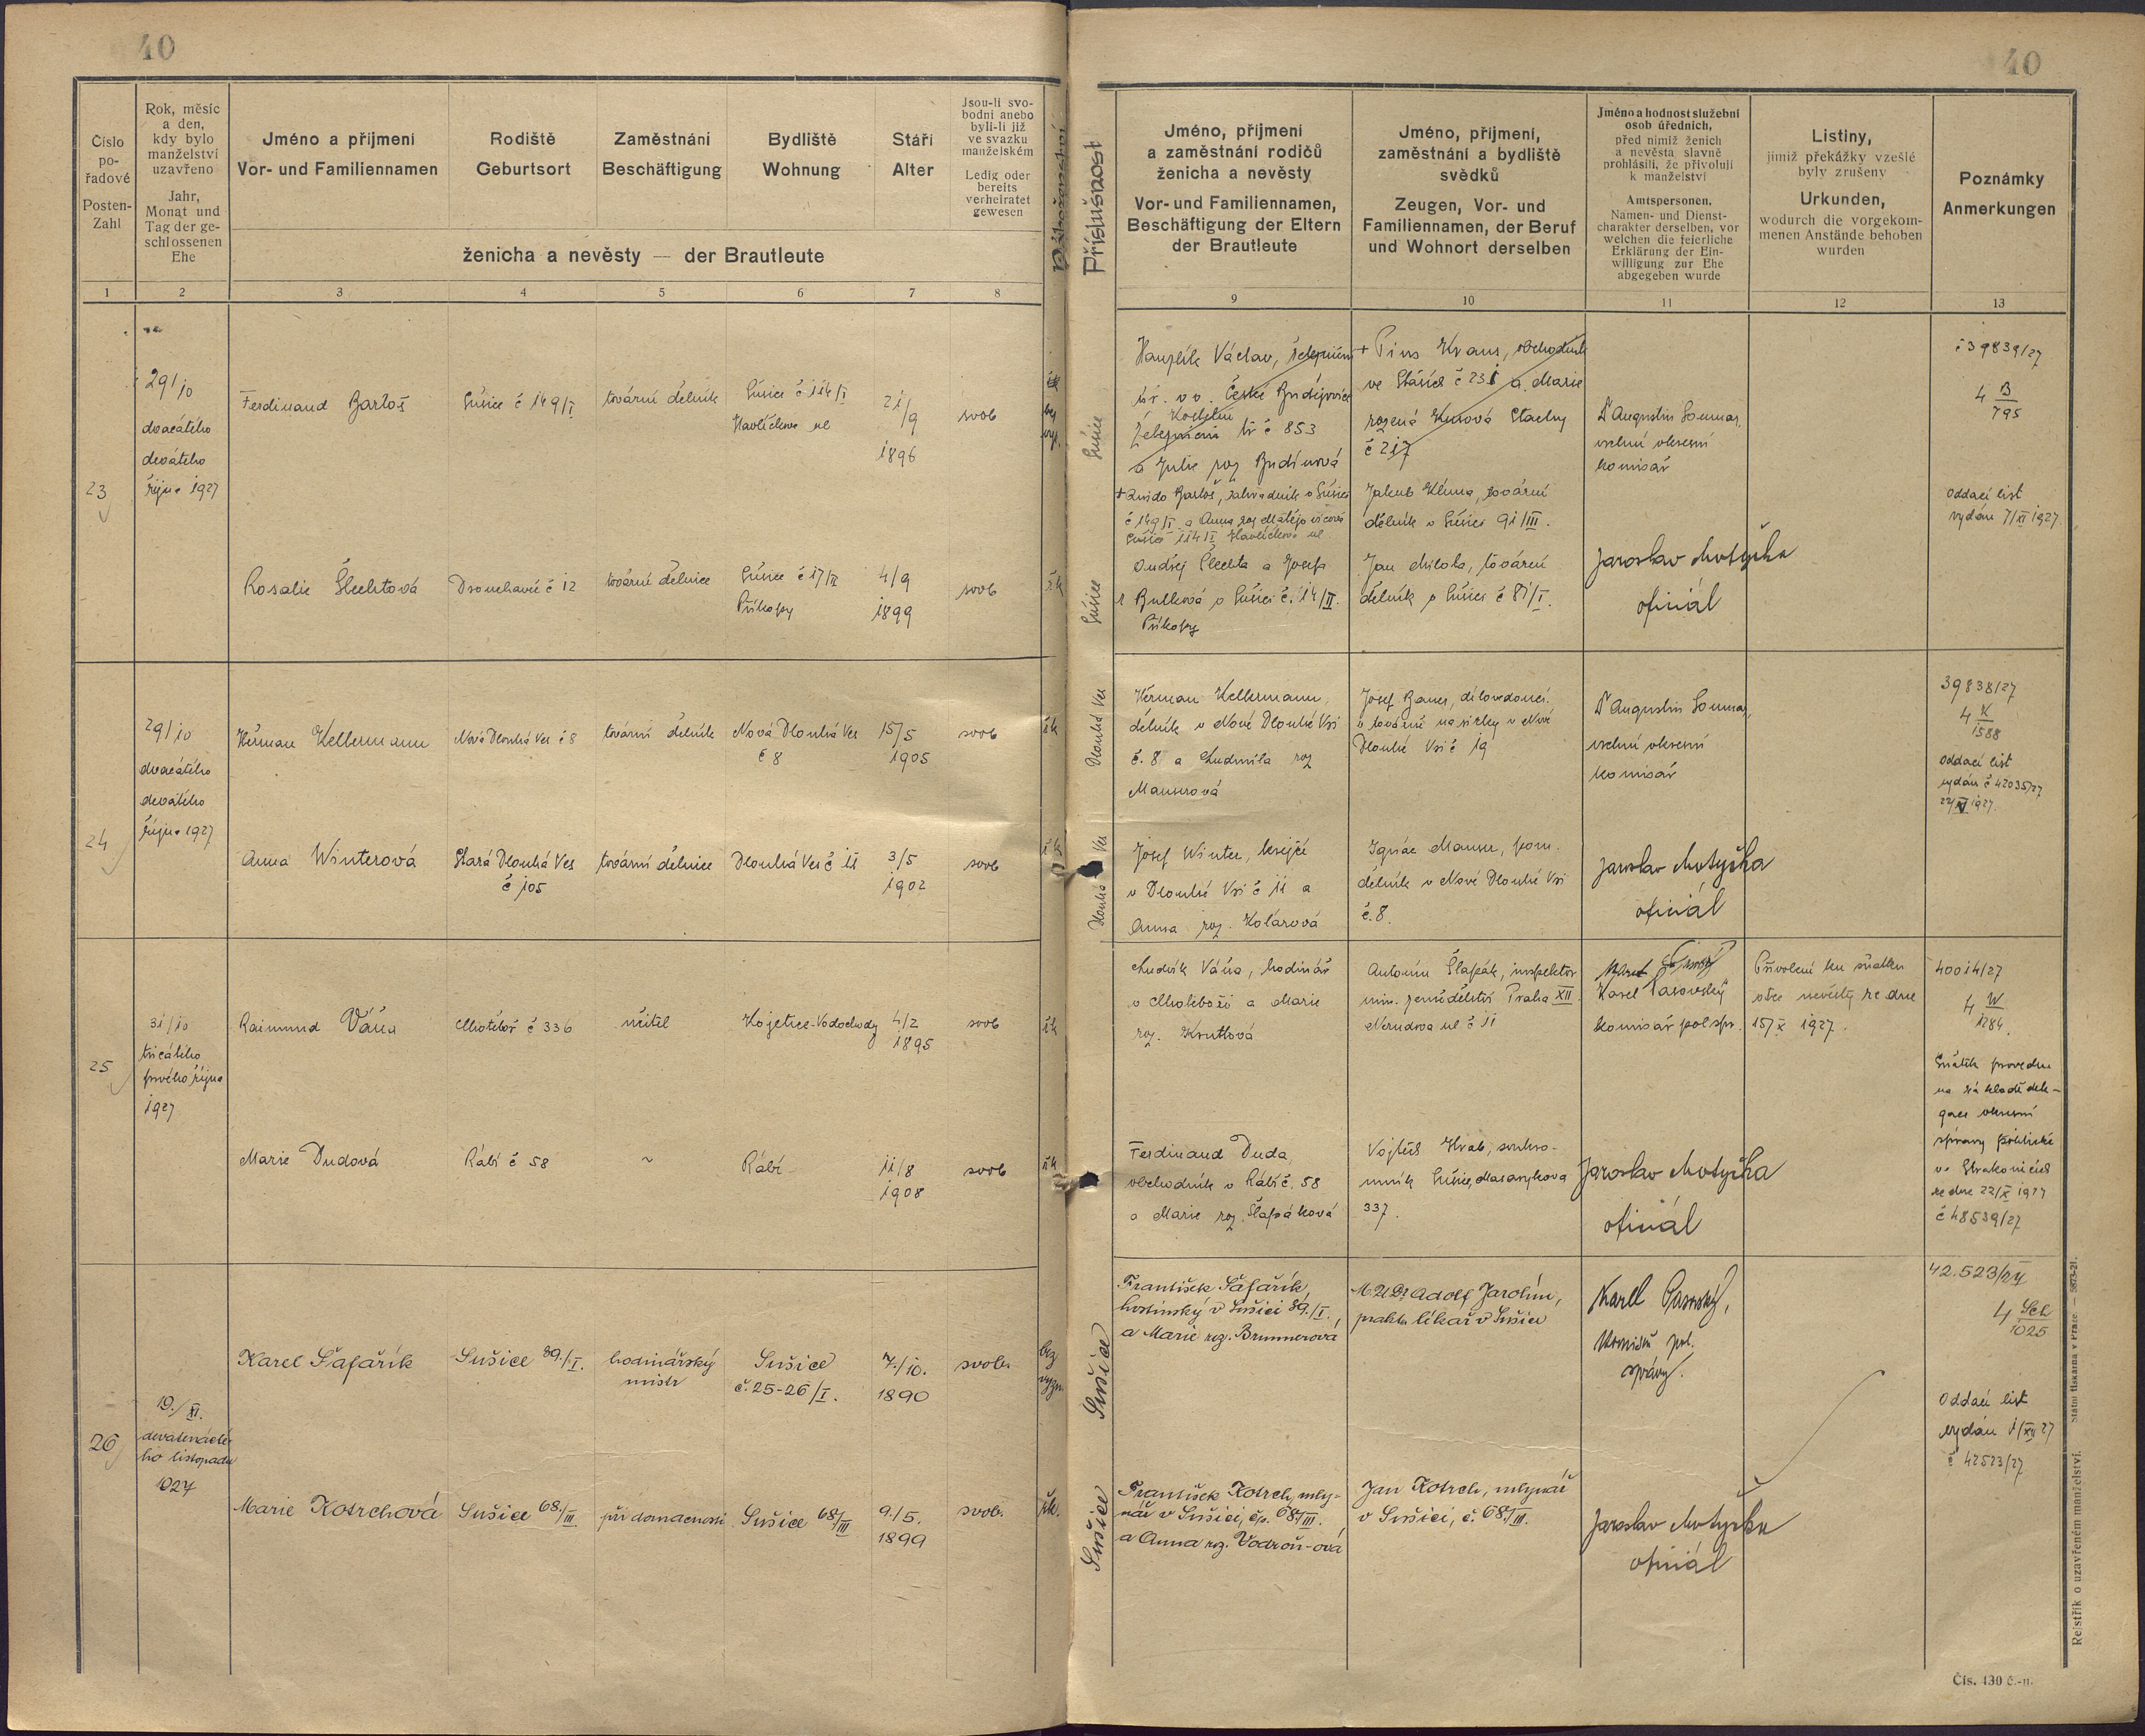 40
40
Číslo
po-
řadové
Posten-
Zahl
Rok, měsíc
a den,
kdy bylo
manželství
uzavřeno
Jahr,
Monat und
Tag der ge-
schlossenen
Ehe
Jméno a příjmení
Vor- und Familiennamen
Rodiště
Geburtsort
Zaměstnání
Beschäftigung
Bydliště
Wohnung
Stáří
Alter
Jsou-li svo-
bodni anebo
byli-li již
ve svazku
manželském
Ledig oder
bereits
verheiratet
gewesen
ženicha a nevěsty — der Brautleute
Příslušnost
Jméno, příjmení
a zaměstnání rodičů
ženicha a nevěsty
Vor- und Familiennamen,
Beschäftigung der Eltern
der Brautleute
Jméno, příjmení,
zaměstnání a bydliště
svědků
Zeugen, Vor- und
Familiennamen, der Beruf
und Wohnort derselben
Jméno a hodnost služební
osob úředních,
před nimiž ženich
a nevěsta slavně
prohlásili, že přivolují
k manželství
Amtspersonen.
Namen- und Dienst-
charakter derselben, vor
welchen die feierliche
Erklärung der Ein-
willigung zur Ehe
abgegeben wurde
Listiny,
jimiž překážky vzešlé
byly zrušeny
Urkunden,
wodurch die vorgekom-
menen Anstände behoben
wurden
Poznámky
Anmerkungen
1 2 3 4 5 6 7 8 9 10 11 12 13
23
29/10
dvacátého
devátého
října 1927
Ferdinand Bartoš
Sušice č 149/I
tovární dělník
Sušice č 114/I
Havlíčkova ul
21/9
1896
svob
bez
vyz.
Sušice
Václav,
České Budějovice
č 853
a Julie roz
+ Pius Kraus, obchodník
ve Stašich č 231 a Marie
rozená Stachy
č 217
+ Quido Bartoš, v Sušici
č 149/I a Anna roz Matějovicová
Sušice 114/I Havlíčkova ul
Jakub Klíma, tovární
dělník v Sušici 91/III.
Dr Augustin Soumar,
vrchní okresní
komisař
č 39839/27
4 B/795
Oddací list
vydán 7/XI 1927.
Rosalie Šlechtová
Drouhavč č 12
tovární dělnice
Sušice č 17/II
Příkopy
4/9
1899
svob
řk
Sušice
Ondřej Šlechta a Josefa
r Bulková v Sušici č. 14/II.
Příkopy
Jan Milota, tovární
dělník v Sušici č 81/I.
Jaroslav Motyčka
oficiál
24
29/10
dvacátého
devátého
října 1927
Heřman Kellermann
Nová Dlouhá Ves č 8
tovární dělník
Nová Dlouhá Ves
č 8
15/5
1905
svob
řk
Dlouhá Ves
Heřman Kellermann,
dělník v Nové Dlouhé Vsi
č. 8 a Ludmila roz
Mauserová
Josef Bauer, dílovedoucí
v továrně na sirky v Nové
Dlouhé Vsi č 19
Dr Augustin Soumar,
vrchní okresní
komisař
39838/27
4 K/1588
Oddací list
vydán č 42035/27
1927.
Anna Winterová
Stará Dlouhá Ves
č 105
tovární dělnice
Dlouhá Ves č 11
3/5
1902
svob
řk
Dlouhá Ves
Josef Winter, krejčí
v Dlouhé Vsi č 11 a
Anna roz. Kolářová
Ignác Mauser, pom.
dělník v Nové Dlouhé Vsi
č. 8.
Jaroslav Motyčka
oficiál
25
31/10
třicátého
prvého října
1927
Raimund Váňa
Chotěboř č 336
učitel
Kojetice-Vodochody
4/2
1895
svob
řk
Ludvík Váňa, hodinář
v Chotěboři a Marie
roz. Krutlová
Antonín Šlapák, inspektor
min. zemědělství Praha XII
Nerudova ul č 11
Karel Pasovský
komisař pol. spr.
Přivolení ku sňatku
otce nevěsty ze dne
15/X 1927.
40014/27
4 W/1284.
Sňatek proveden
na základě dele-
gace okresní
správy politické
ve Strakonicích
ze dne 22/X 1927
č 48539/27
Marie Dudová
Rábí č 58
~
Rábí
11/8
1908
svob
řk
Ferdinand Duda,
obchodník v Rábí č. 58
a Marie roz. Šlapáková
Vojtěch Hrab, soukro-
mník Sušice, Masarykova
337.
Jaroslav Motyčka
oficiál
26
19./XI.
devatenácté-
ho listopadu
1927
Karel Šafařík
Sušice 89./I.
hodinářský
mistr
Sušice
č. 25-26/I.
7./10.
1890
svob.
bez
vyzn.
Sušice
František Šafařík,
hostinský v Sušici 89./I.
a Marie roz. Brunnerová
MUDr Adolf Jarolím,
prakt. lékař v Sušici
Karel Pasovský,
komisař pol.
správy.
42.523/27
4 Sch/1025
Oddací list
vydán 1/XII 27
č 42523/27
Marie Kotrchová
Sušice 68./III
při domácnosti
Sušice 68/III
9./5.
1899
svob.
řk.
Sušice
František Kotrch, mly-
nář v Sušici, čp. 68/III.
a Anna roz. Vodroň-ová
Jan Kotrch, mlynář
v Sušici, č. 68/III.
Jaroslav Motyčka
oficiál
Rejstřík o uzavřeném manželství. Státní tiskárna v Praze. — 5873-21.
Čís. 430 č.-n.